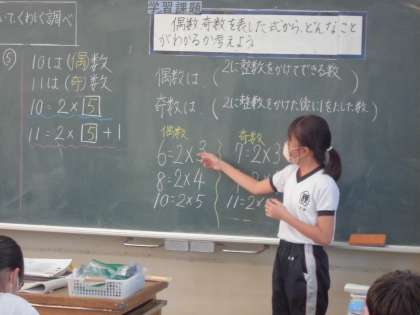 いてくわしく調べ
⑤
10は(偶)数
11は(奇)数
10=2×5
11=2×5+1
学習課題
偶数、奇数を表した式から、どんなこと
がわかるか考えよう
偶数は、(2に整数をかけてできる数)
奇数は、(2に整数をかけた後に1をたした数)
偶数
6=2×3
8=2×4
10=2×5
奇数
7=2×3
11=2×